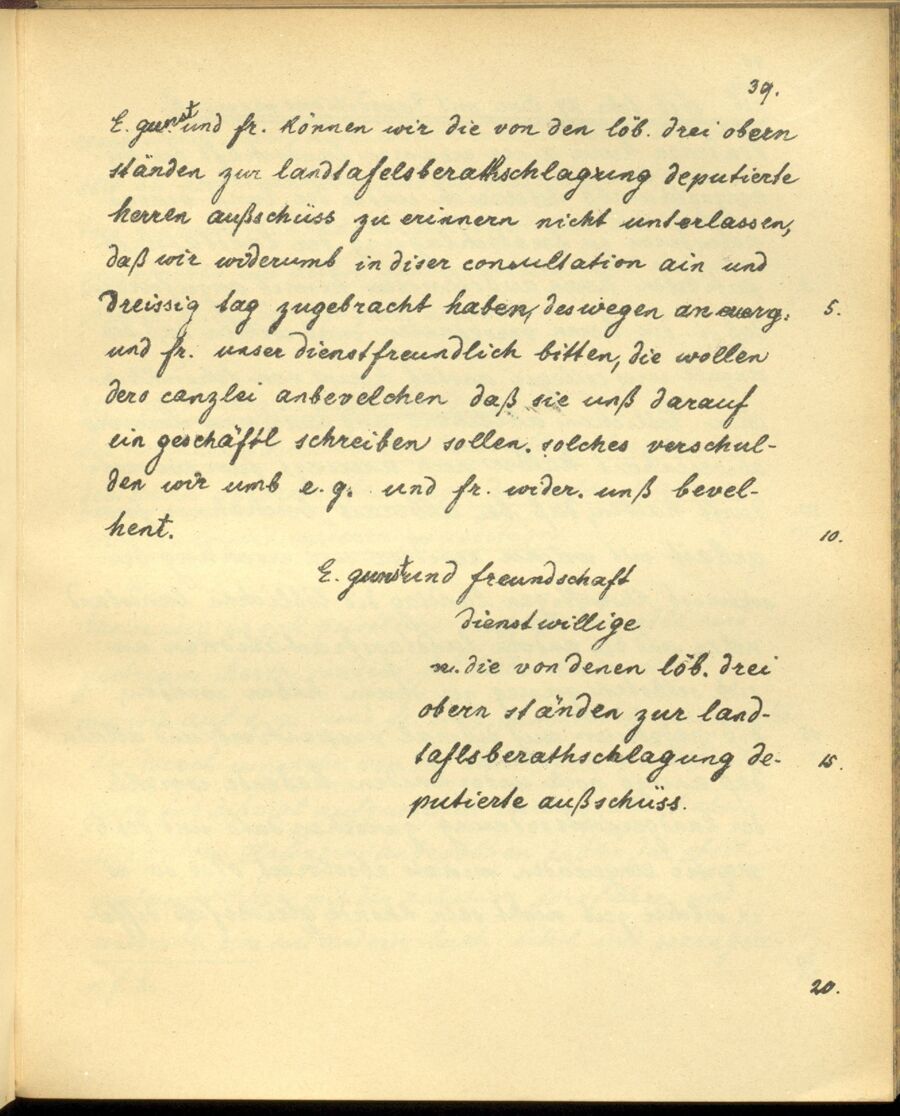 39.
E. gunst und fr. können wir die von den löb. drei obern
ständen zur landtafelsberathschlagung deputierte
herren außschüss zu erinnern nicht unterlassen,
daß wir widerumb in diser consultation ain und
dreissig tag zugebracht haben, deswegen an eurg. 5.
und fr. unser dienstfreundlich bitten, die wollen
dero canzlei anbevelchen daß sie unß darauf
ein geschäftl schreiben sollen. solches verschul-
den wir umb e. g. und fr. wider. unß bevel-
hent. 10.
E. gunst und freundschaft
dienstwillige
n. die von denen löb. drei
obern ständen zur land-
taflsberathschlagung de- 15.
putierte außschüss.
20.